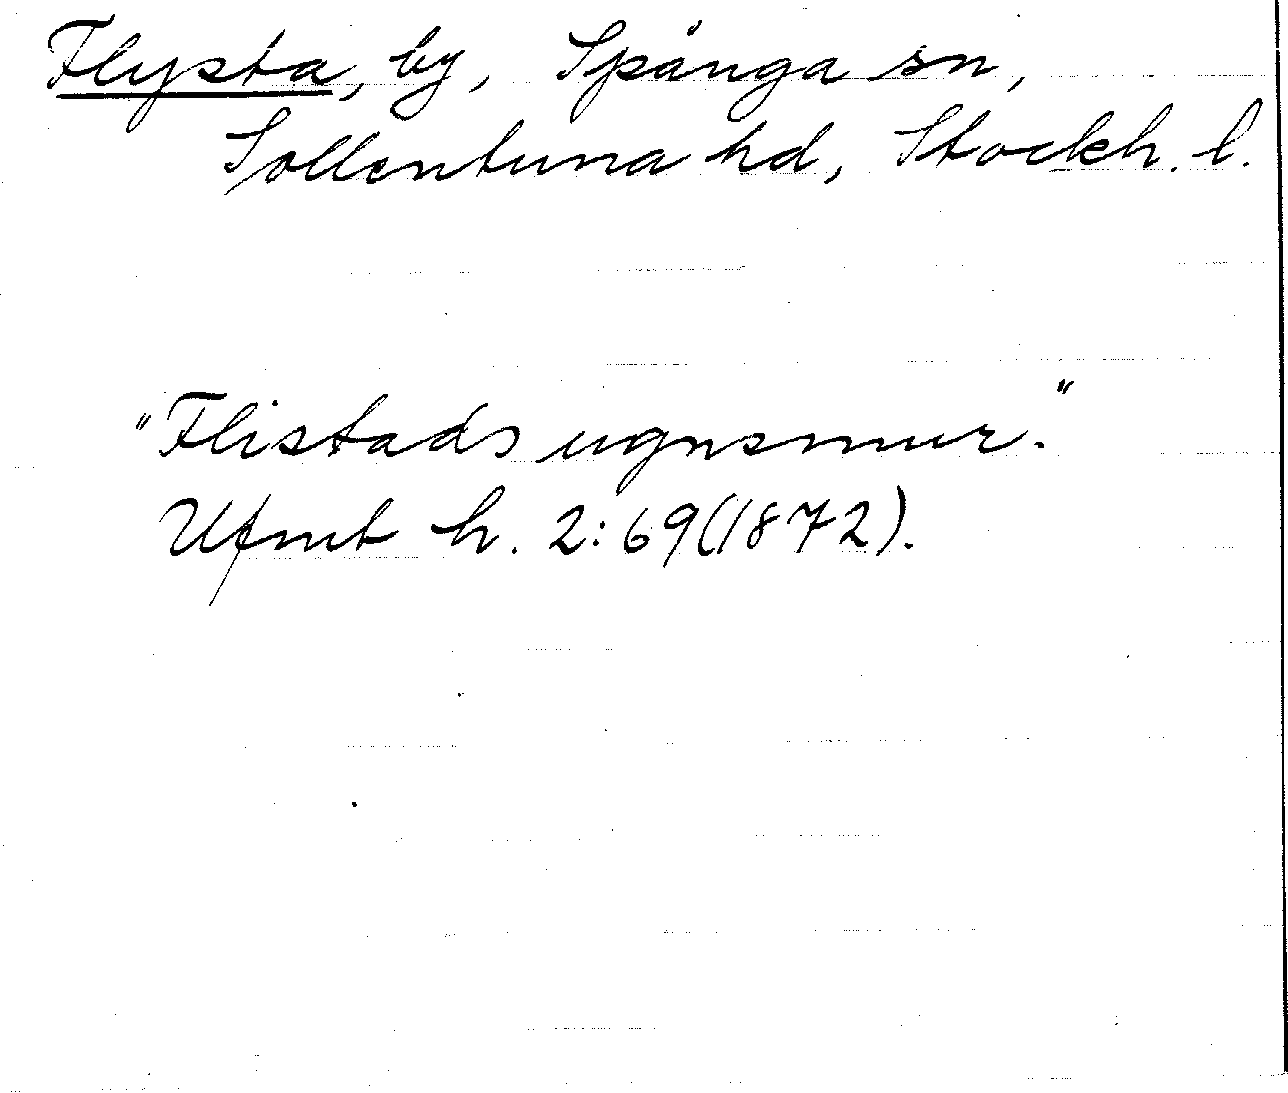 Flysta, by, Spånga sn,
Sollentuna hd, Stockh. l.
"Flistads ugnsmur."
Ufmt h. 2:69(1872).